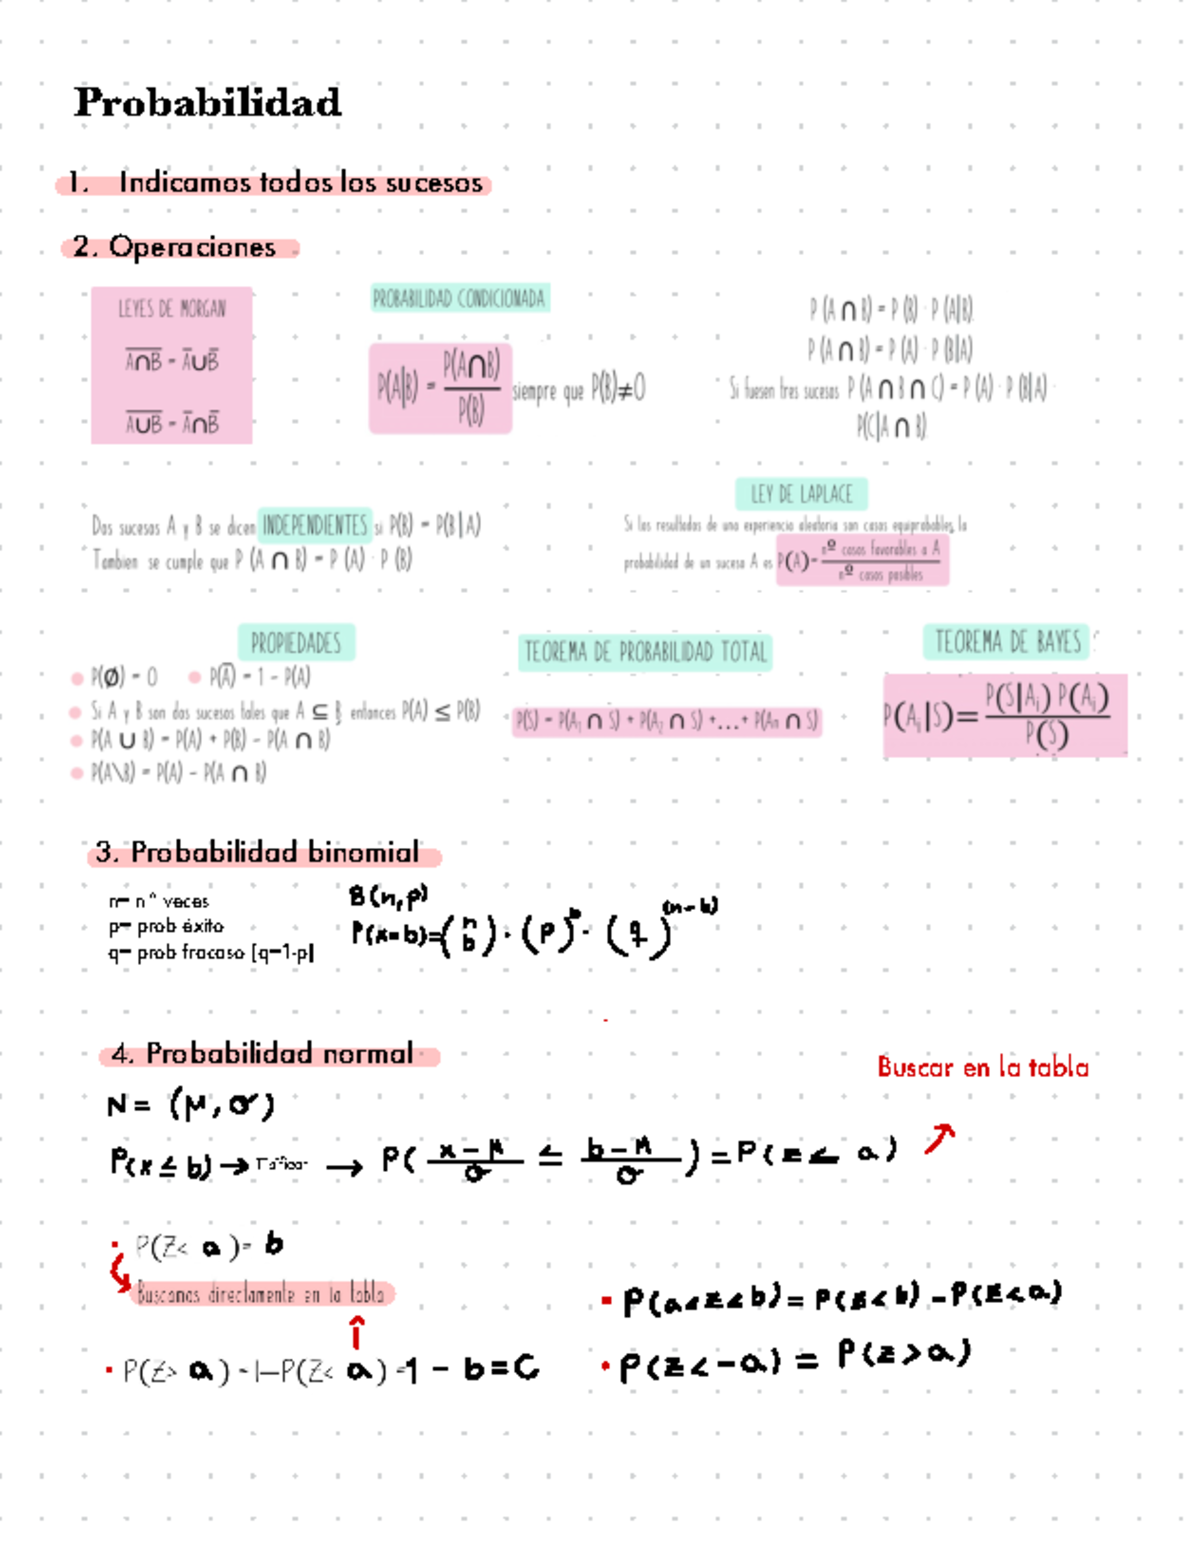 Probabilidad
1. Indicamos todos los sucesos
2. Operaciones
LEYES DE MORGAN
\overline{A∩B} = \overline{A}∪\overline{B}
\overline{A∪B} = \overline{A}∩\overline{B}
PROBABILIDAD CONDICIONADA
P(A|B) = P(A∩B) / P(B) siempre que P(B)≠0
P (A ∩ B) = P (B) · P (A|B)
P (A ∩ B) = P (A) · P (B|A)
Si fuesen tres sucesos P (A ∩ B ∩ C) = P (A) · P (B|A) ·
P(C|A ∩ B)
Dos sucesos A y B se dicen INDEPENDIENTES si P(B) = P(B|A)
Tambien se cumple que P (A ∩ B) = P (A) · P (B)
LEY DE LAPLACE
Si los resultados de una experiencia aleatoria son casos equiprobables, la
probabilidad de un suceso A es P(A)= nº casos favorables a A / nº casos posibles
PROPIEDADES
P(Ø) = 0 P(\overline{A}) = 1 - P(A)
Si A y B son dos sucesos tales que A ⊆ B, entonces P(A) ≤ P(B)
P(A ∪ B) = P(A) + P(B) - P(A ∩ B)
P(A\B) = P(A) - P(A ∩ B)
TEOREMA DE PROBABILIDAD TOTAL
P(S) = P(A₁ ∩ S) + P(A₂ ∩ S) +...+ P(Aₙ ∩ S)
TEOREMA DE BAYES
P(Aᵢ|S)= P(S|Aᵢ) P(Aᵢ) / P(S)
3. Probabilidad binomial
n= n° veces
p= prob éxito
q= prob fracaso [q=1-p]
B(n,p)
P(x=b)=(n b)·(p)^b·(q)^(n-b)
4. Probabilidad normal
Buscar en la tabla
N= (μ,σ)
P(x≤b)→ Tificar → P( x-μ / σ ≤ b-μ / σ )=P(z≤ a)
P(Z< a)= b
Buscamos directamente en la tabla
P(Z> a) = 1-P(Z< a) =1 - b=C
P(a<z<b)= P(z<b) -P(z<a)
P(z<-a) = P(z>a)